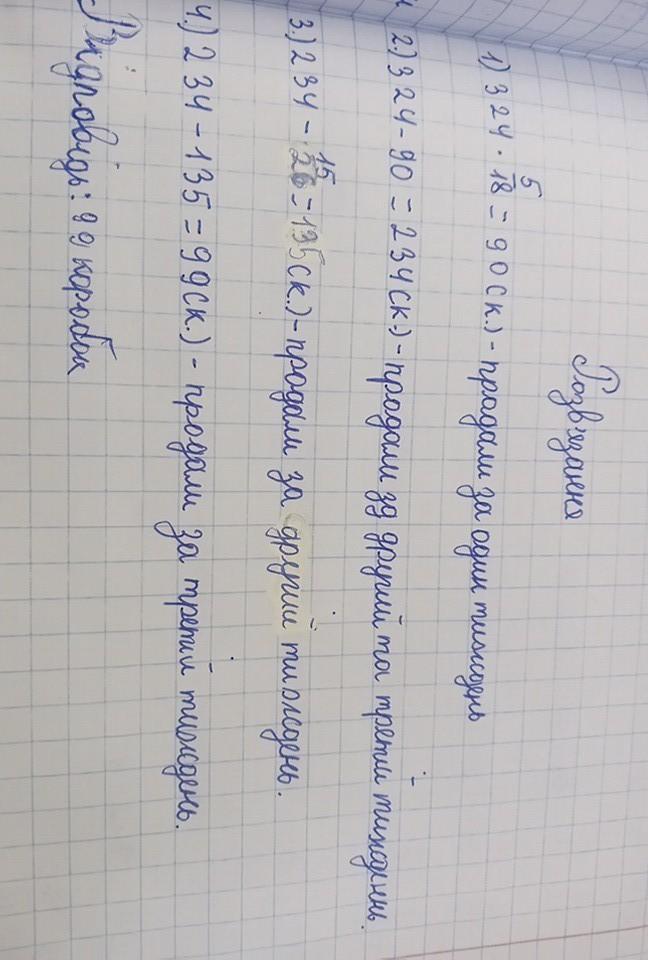 Розв'язання
1) 324 · 5/18 = 90 ск.) - продали за один тиждень
2.) 324 - 90 = 234 ск.) - продали за другий та третій тиждень.
3.) 234 - 15/26 = 135 ск.) - продали за другий тиждень.
4.) 234 - 135 = 99 ск.) - продали за третій тиждень.
Відповідь: 99 коробок